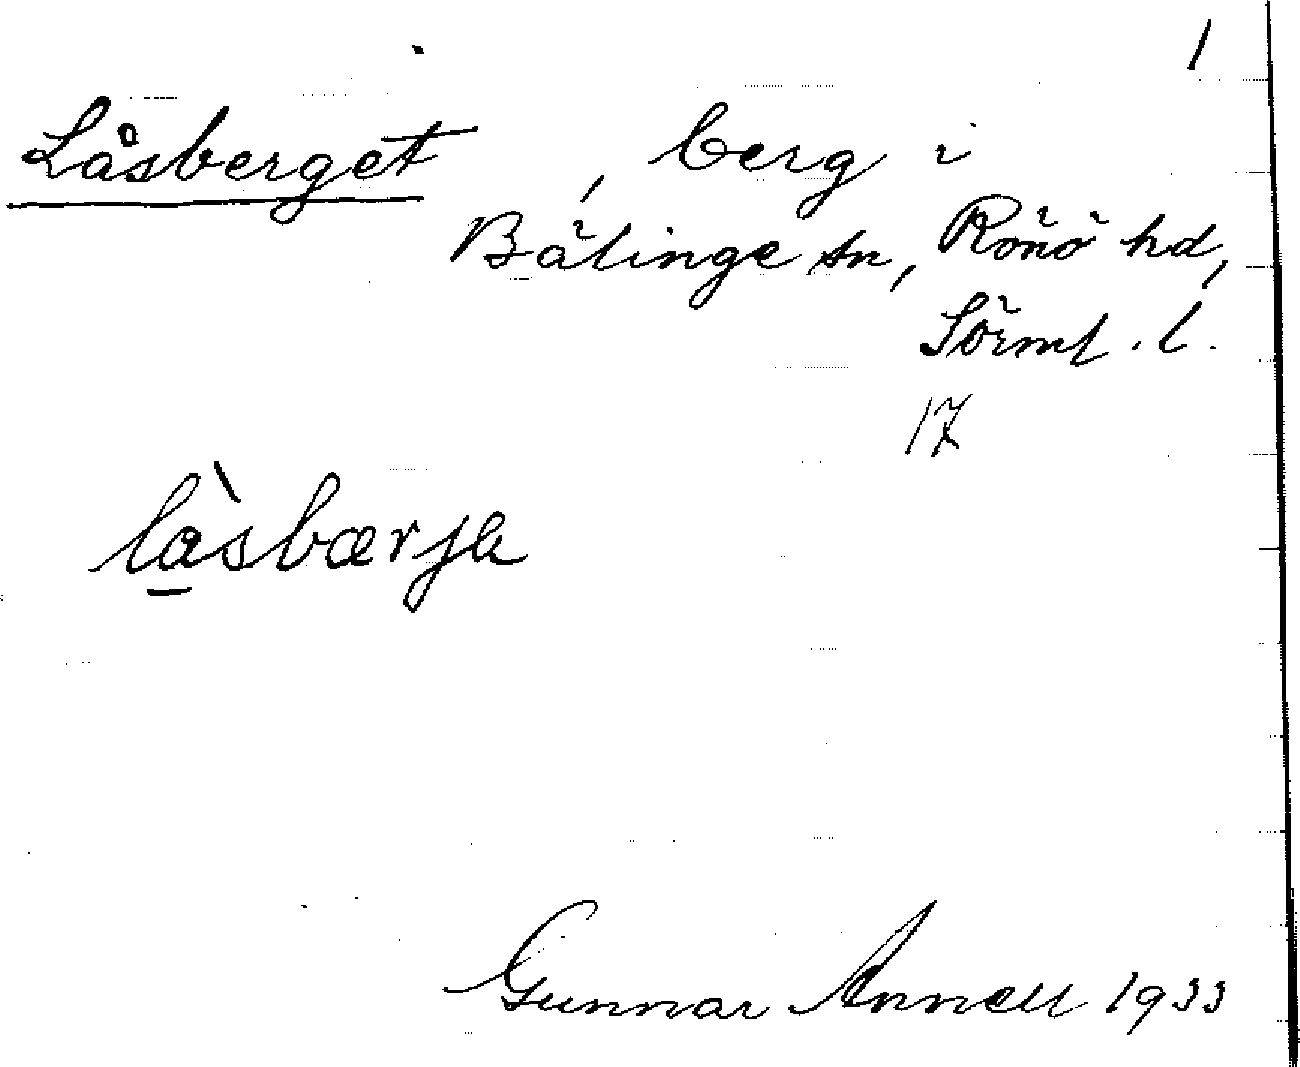 1
Låsberget, berg i
Bälinge sn, Rönö hd,
Sörml. l.
17
lɑ̀sbærjɐ
Gunnar Annell 1933